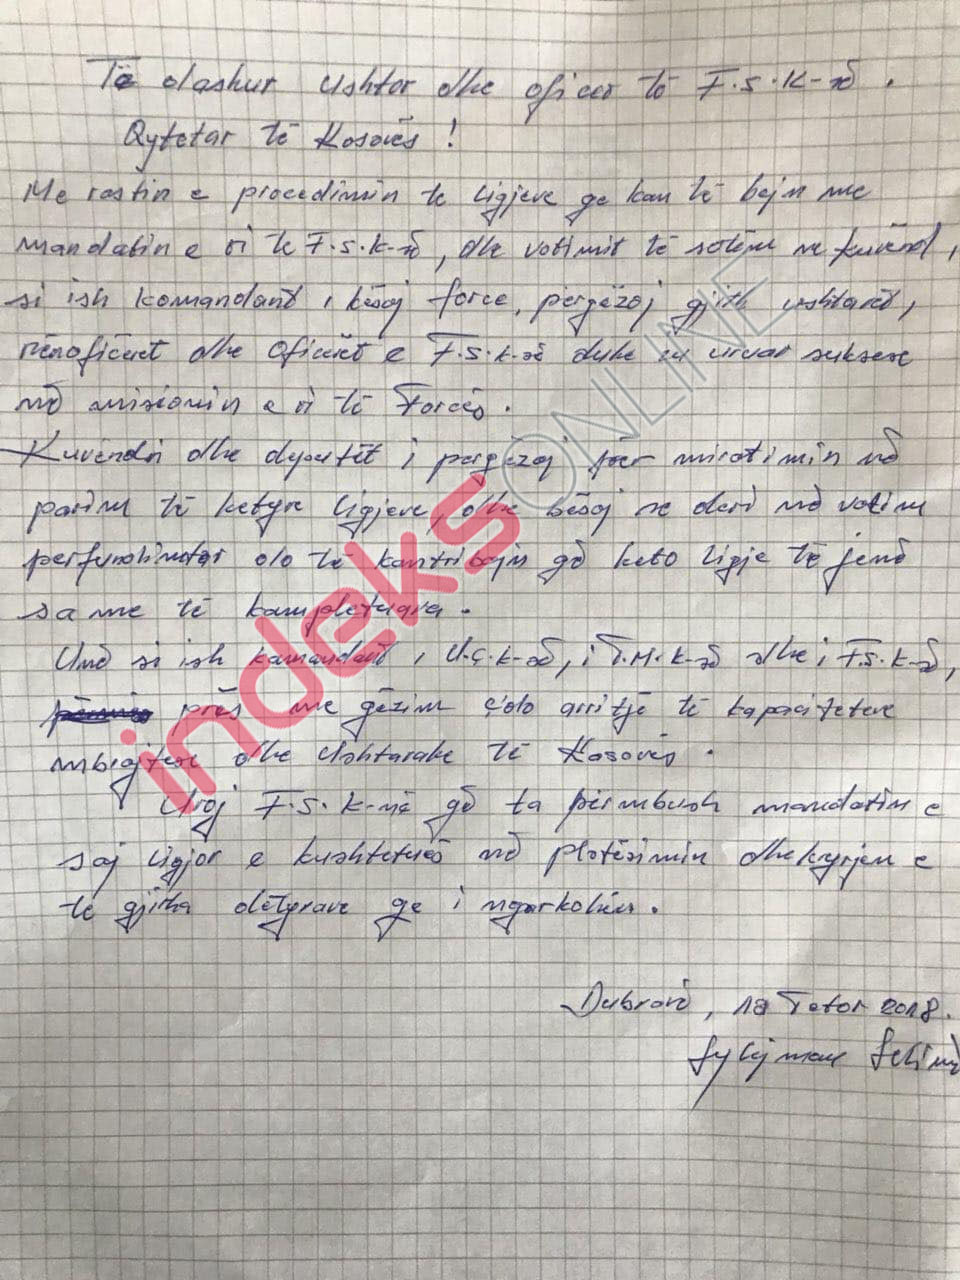 Të dashur ushtar dhe oficer të F.S.K-së.
Qytetar të Kosovës!
Me rastin e procedimin te ligjeve qe kan të bejn me
mandatin e ri te F.S.K-së, dhe votimit të sotëm ne kuvënd,
si ish komandant i kësaj force, përgëzoj gjith ushtarët,
nënoficerët dhe oficerët e F.S.K-së duke ju uruar suksese
në misionin e ri të Forcës.
Kuvëndin dhe deputët i pergëzoj për miratimin në
parim të ketyre ligjeve, dhe bësoj se deri në votim
perfundimtar do të kontribojn që keto ligje të jenë
sa me të kompletuara.
Unë si ish komandant i U.Ç.K-së, i T.M.K-së dhe i F.S.K-së,
prës me gëzim çdo arritje të kapaciteteve
mbrojtëse dhe ushtarake të Kosovës.
Uroj F.S.K-në që ta përmbush mandatin e
saj ligjor e kushtetues në plotësimin dhe kryrjen e
të gjitha dëtyrave qe i ngarkohen.
Dubravë, 18 Tetor 2018.
Sylejman Selimi
indeks
ONLINE